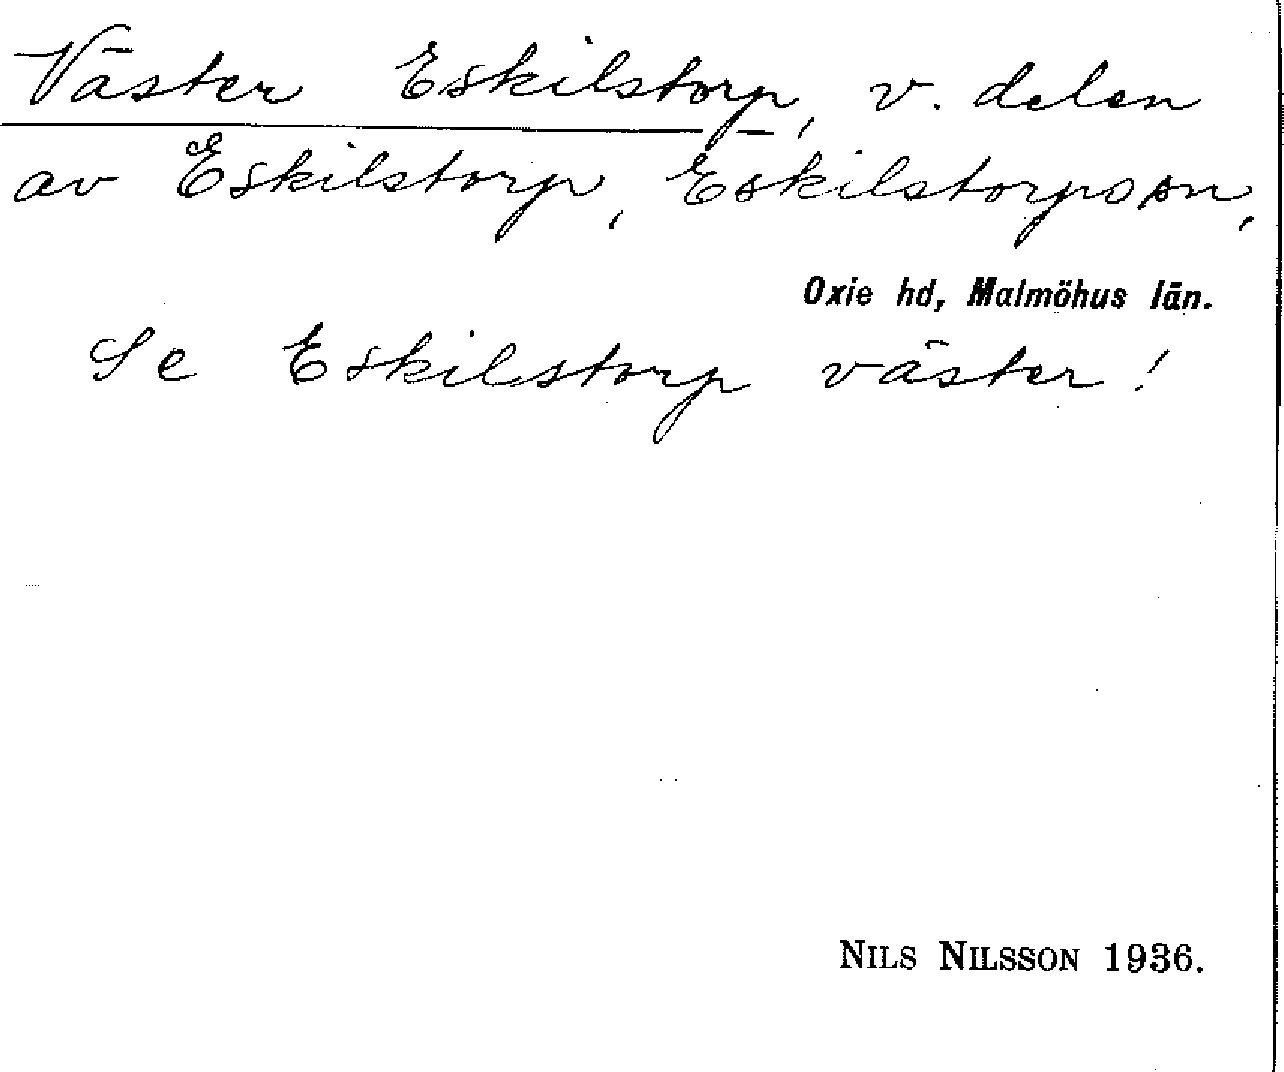 Väster Eskilstorp, v. delen
av Eskilstorp, Eskilstorps sn,
Oxie hd, Malmöhus län.
Se Eskilstorp väster!
NILS NILSSON 1936.